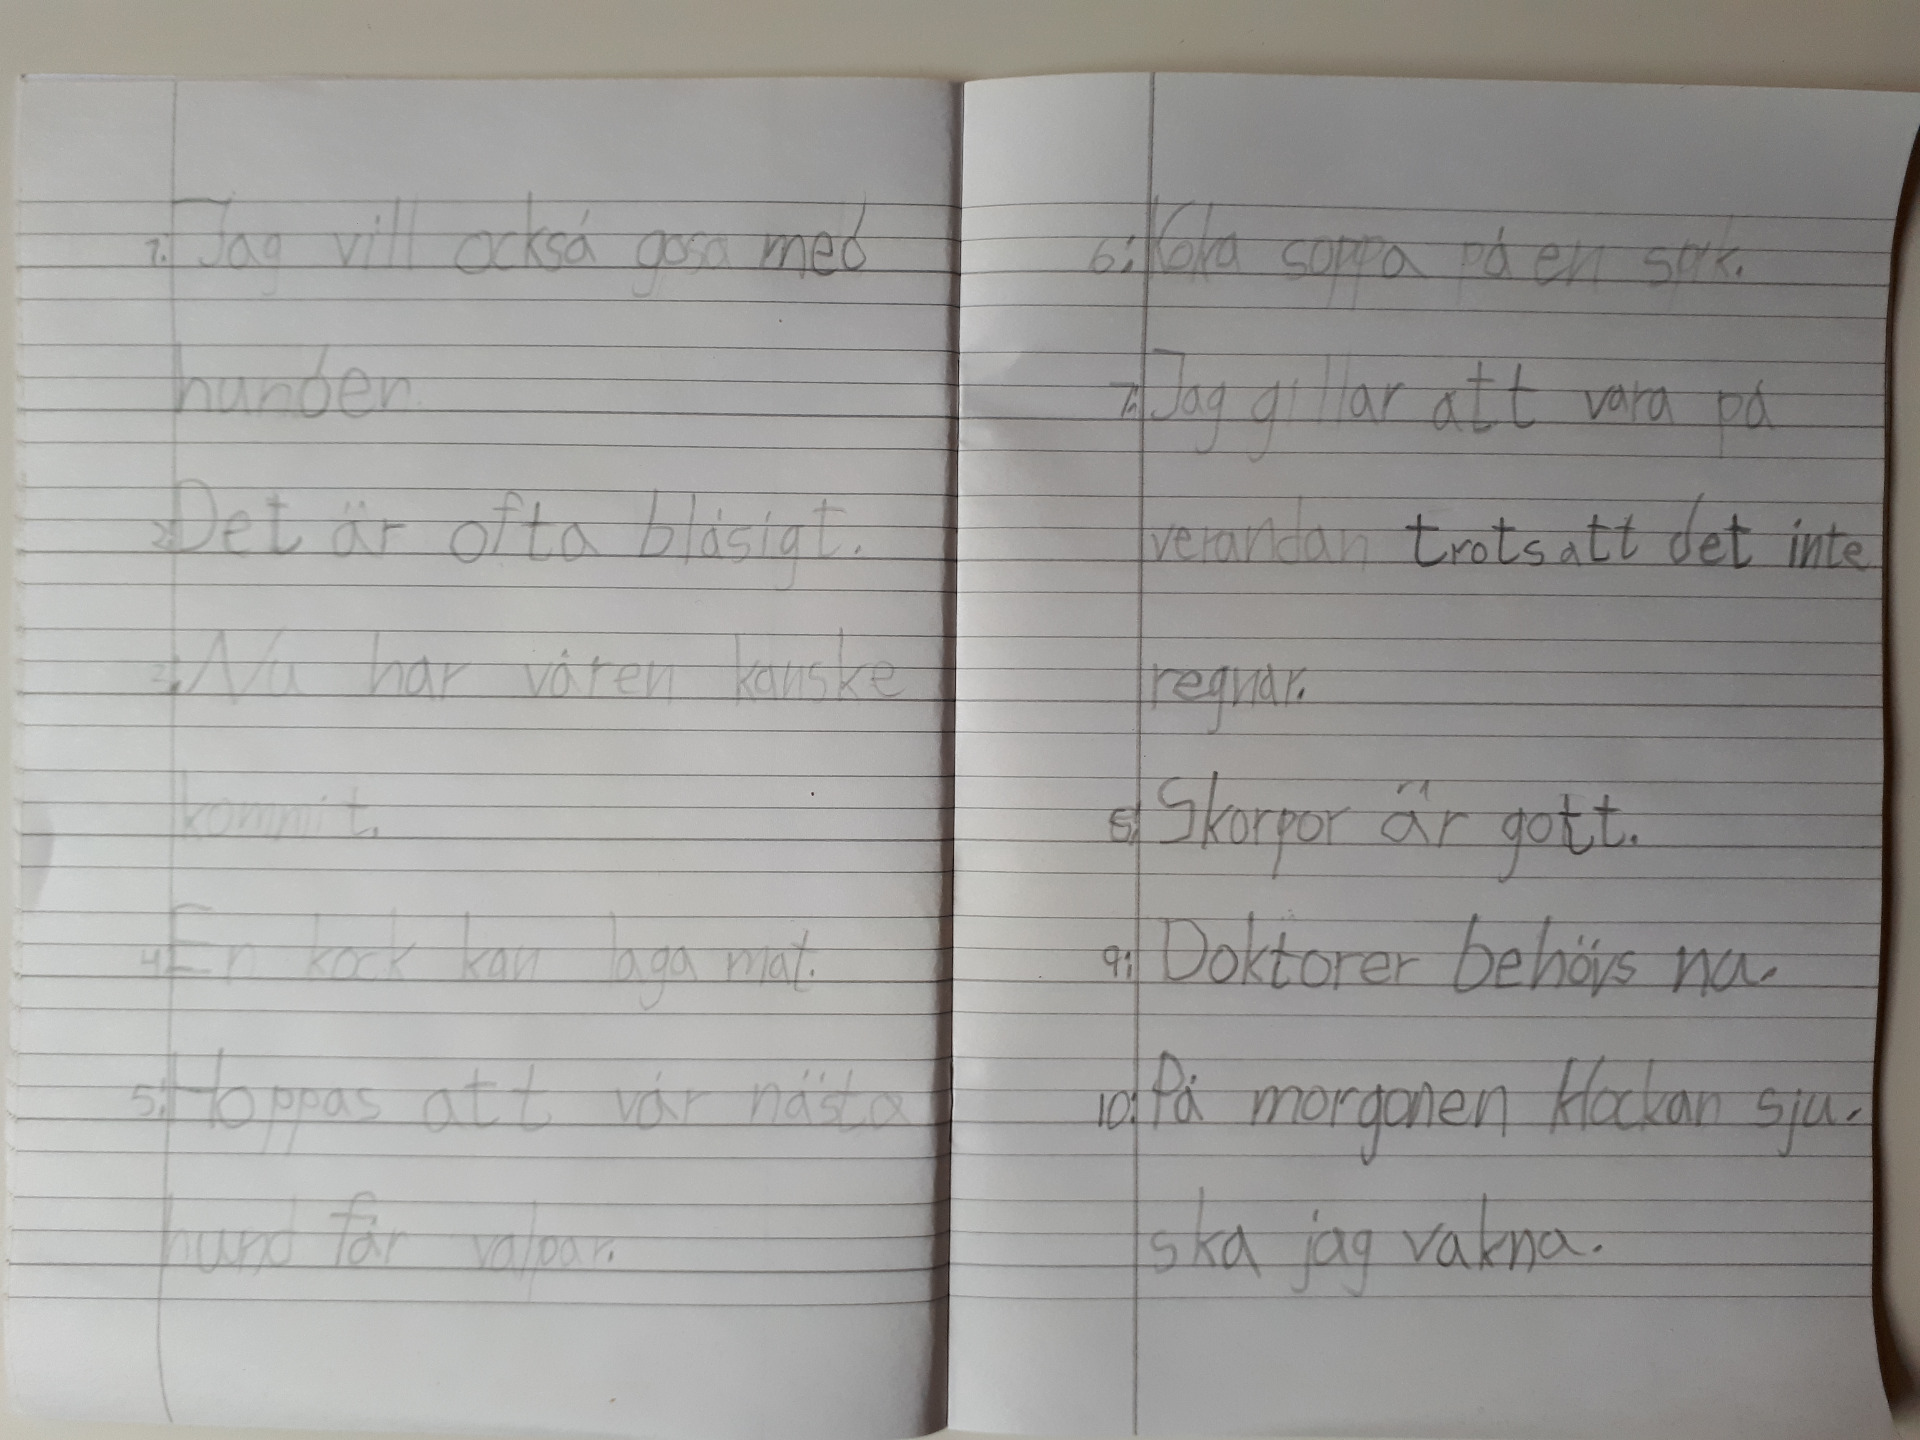 1. Jag vill också gosa med
hunden.
2. Det är ofta blåsigt.
3. Nu har våren kanske
kommit.
4. En kock kan laga mat.
5. Hoppas att vår nästa
hund får valpar.
6. Koka soppa på en spik.
7. Jag gillar att vara på
verandan trots att det inte
regnar.
8. Skorpor är gott.
9. Doktorer behövs nu.
10. På morgonen klockan sju.
ska jag vakna.